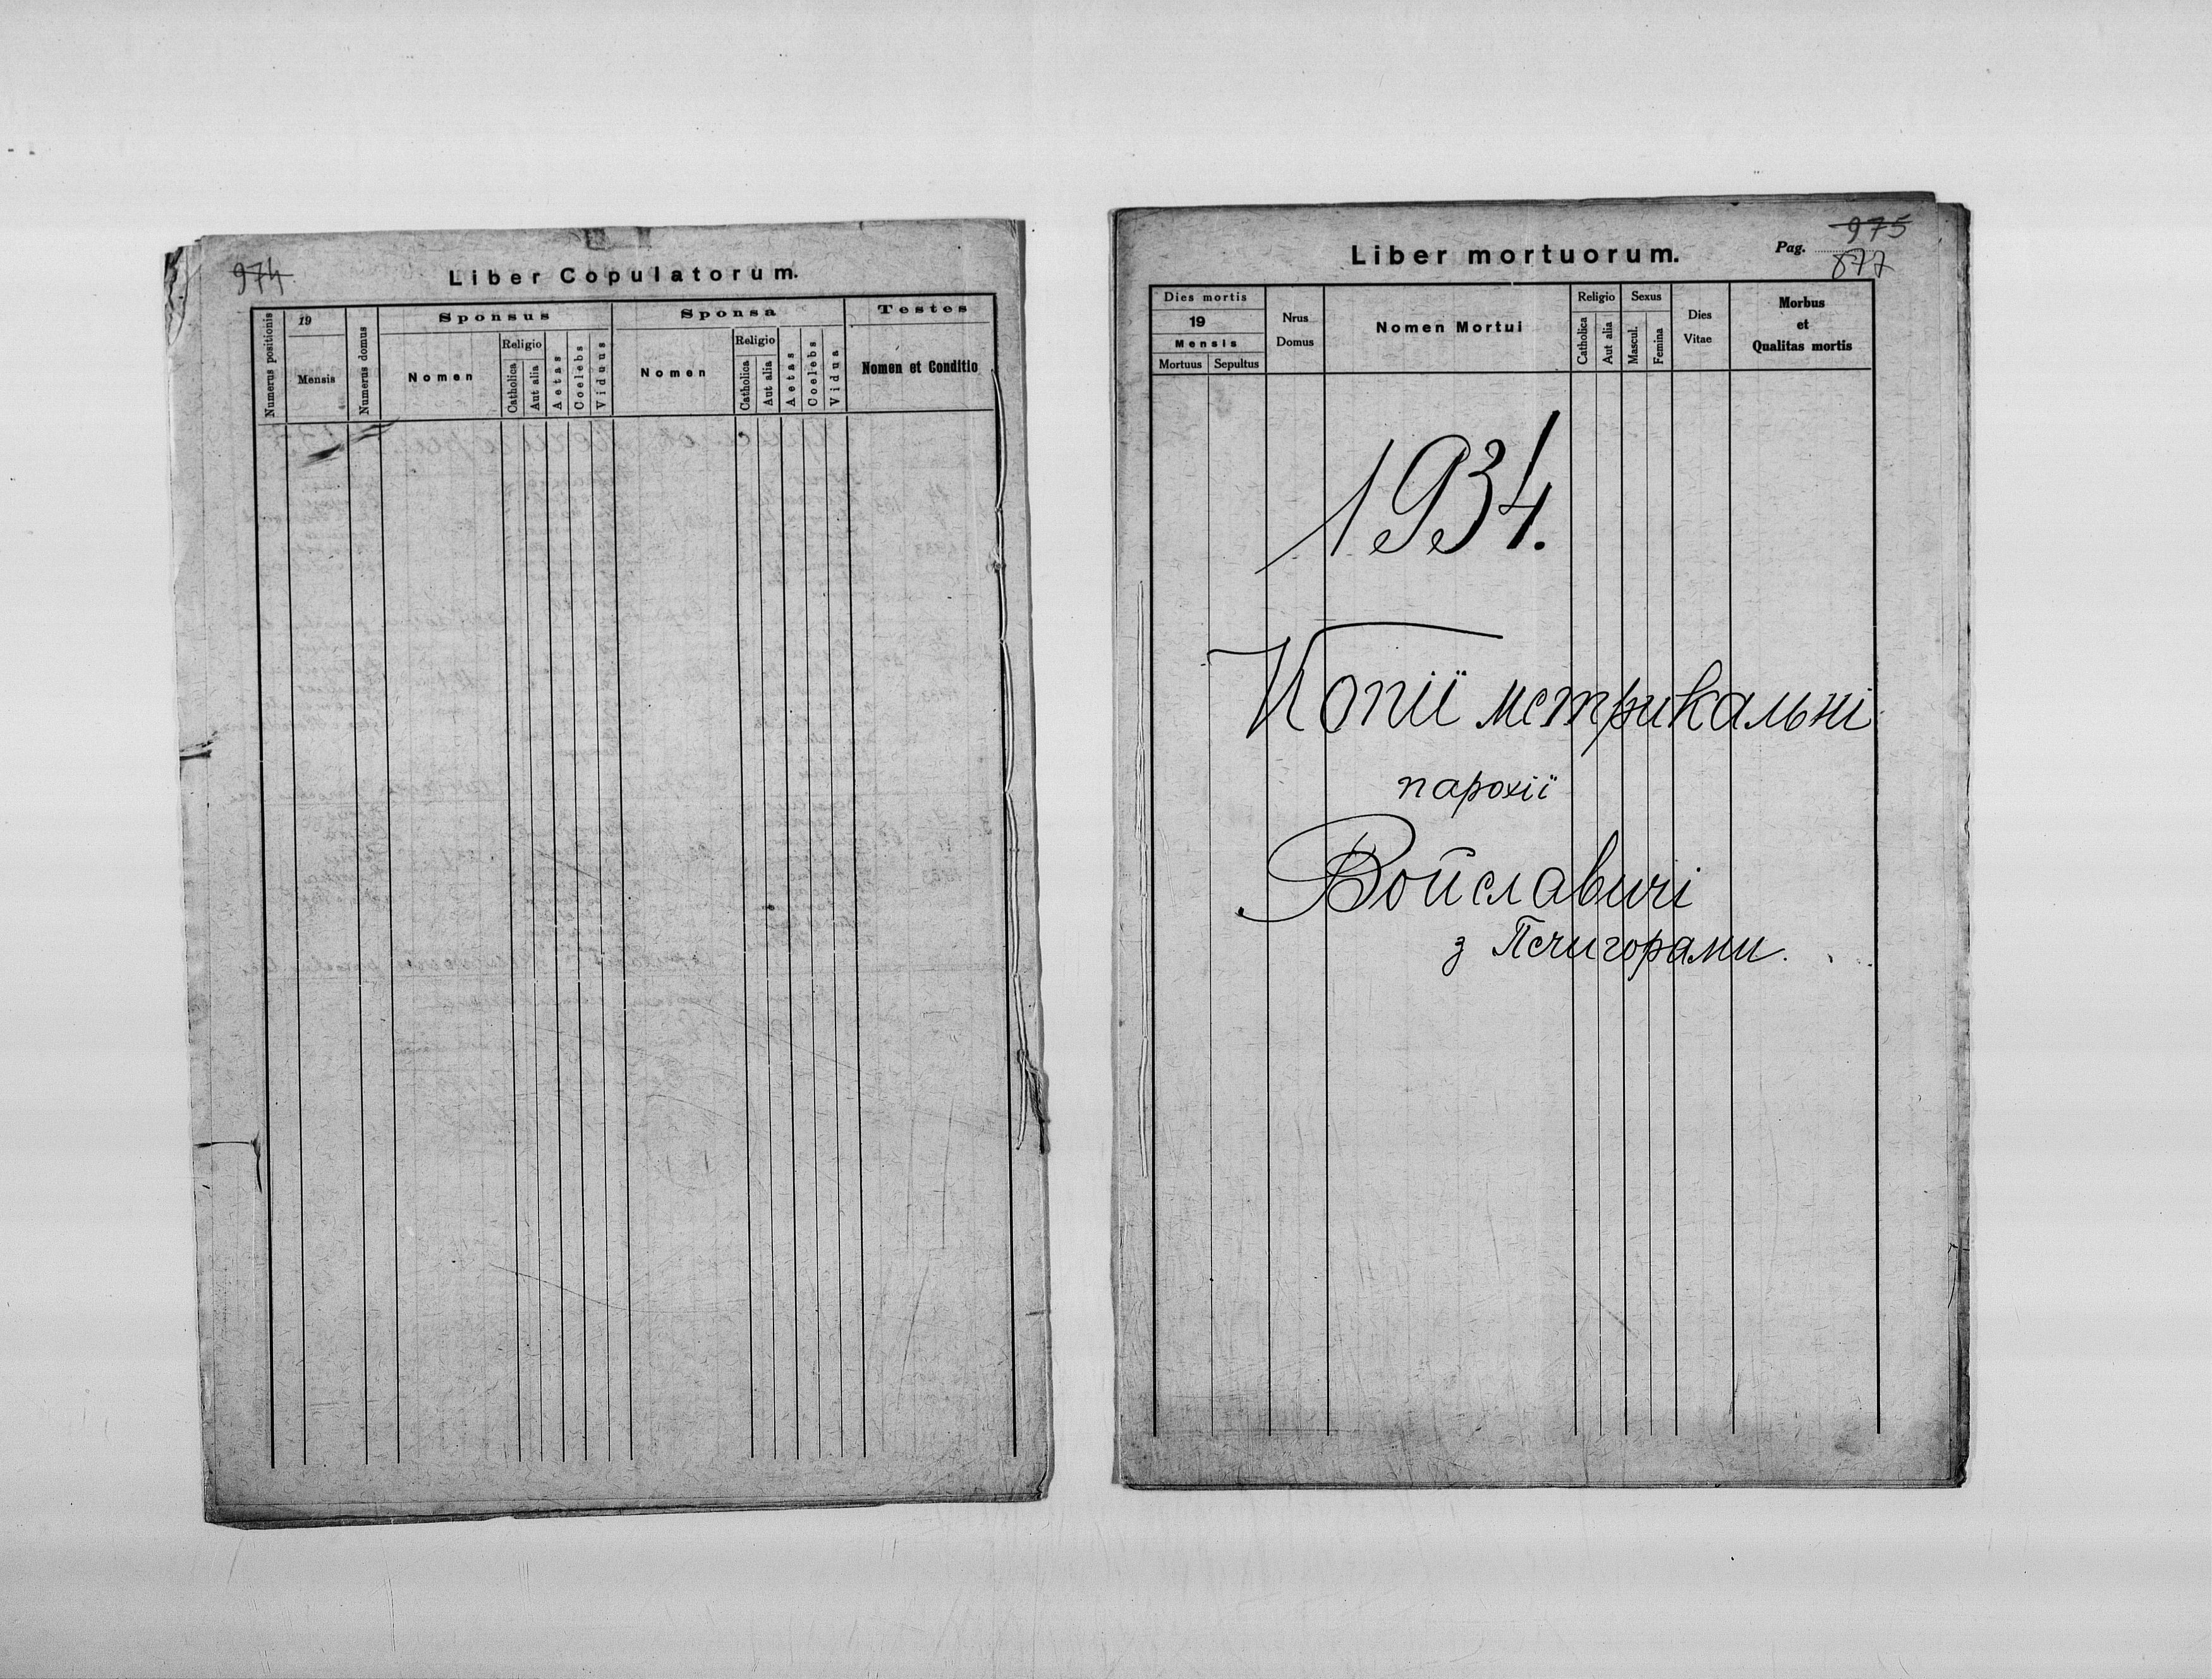 974
Liber Copulatorum.
Numerus positionis
19
Mensis
Numerus domus
Sponsus
Nomen
Religio
Catholica
Aut alia
Aetas
Coelebs
Viduus
Sponsa
Nomen
Religio
Catholica
Aut alia
Aetas
Coelebs
Vidua
Testes
Nomen et Conditio
975
Liber mortuorum.
Pag.
877
Dies mortis
19
Mensis
Mortuus
Sepultus
Nrus
Domus
Nomen Mortui
Religio
Catholica
Aut alia
Sexus
Mascul.
Femina
Dies
Vitae
Morbus
et
Qualitas mortis
1934.
Копії метрикальні
парохії
Войславичі
з Печигорами.